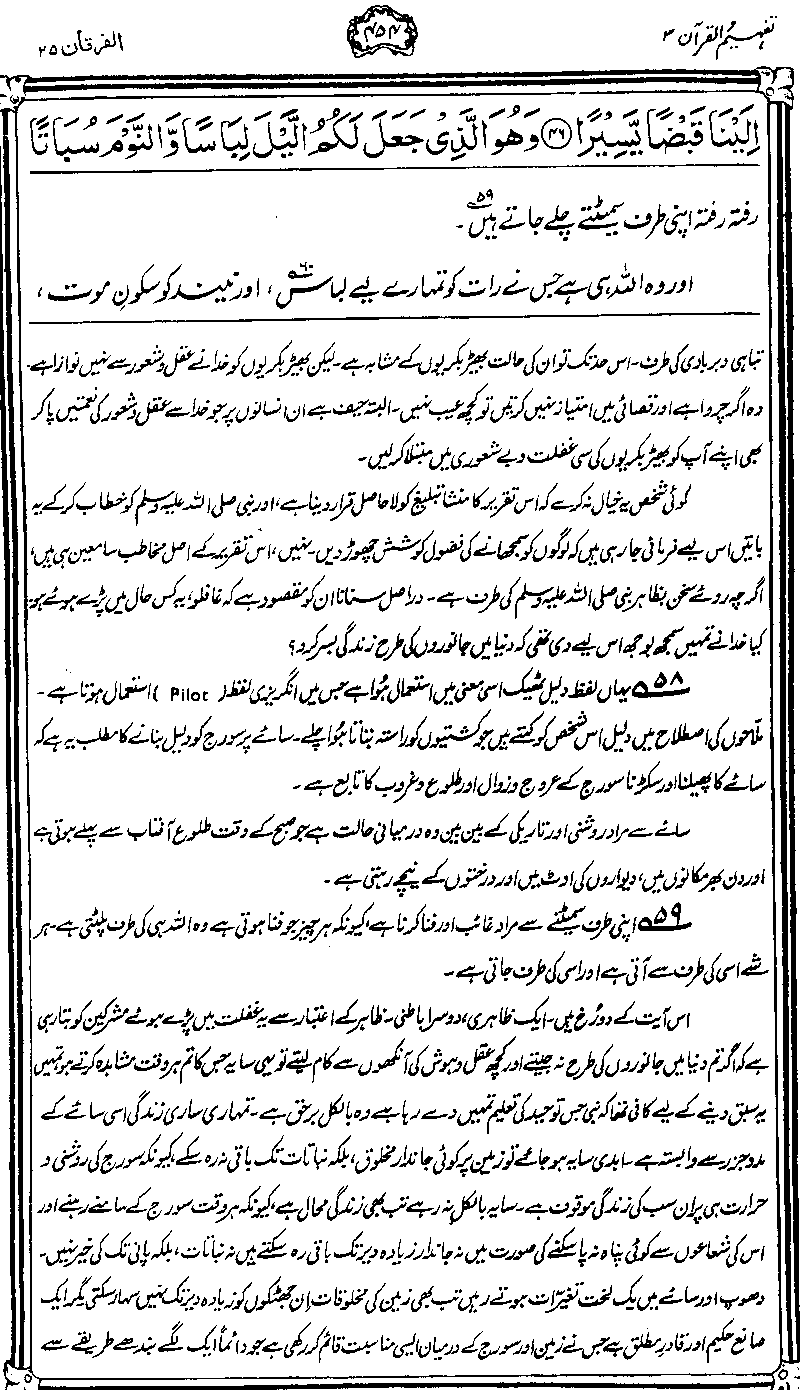 تفہیم القرآن ۳
۴۵۴
الفرقان ۲۵
اِلَيْنَا قَبْضًا يَّسِيْرًا ﴿۴۶﴾ وَهُوَ الَّذِيْ جَعَلَ لَكُمُ الَّيْلَ لِبَاسًا وَّالنَّوْمَ سُبَاتًا
رفتہ رفتہ اپنی طرف سمیٹتے چلے جاتے ہیں۵۹۔
اور وہ اللہ ہی ہے جس نے رات کو تمہارے لیے لباس۶۰، اور نیند کو سکونِ موت،
تباہی و بربادی کی طرف۔ اس حد تک تو ان کی حالت بھیڑ بکریوں کے مشابہ ہے۔ لیکن بھیڑ بکریوں کو خدا نے عقل و شعور سے نہیں نوازا ہے۔
وہ اگر چرواہے اور قصائی میں امتیاز نہیں کرتیں تو کچھ عیب نہیں۔ البتہ حیف ہے ان انسانوں پر جو خدا سے عقل و شعور کی نعمتیں پا کر
بھی اپنے آپ کو بھیڑ بکریوں کی سی غفلت و بے شعوری میں مبتلا کر لیں۔
کوئی شخص یہ خیال نہ کرے کہ اس تقریر کا منشا تبلیغ کو لا حاصل قرار دینا ہے، اور نبی صلی اللہ علیہ وسلم کو خطاب کر کے یہ
باتیں اس لیے فرمائی جا رہی ہیں کہ لوگوں کو سمجھانے کی فضول کوشش چھوڑ دیں۔ نہیں، اس تقریر کے اصل مخاطب سامعین ہی ہیں،
اگرچہ روئے سخن بظاہر نبی صلی اللہ علیہ وسلم کی طرف ہے۔ دراصل سنانا ان کو مقصود ہے کہ غافلو، یہ کس حال میں پڑے ہوئے ہو۔
کیا خدا نے تمہیں سمجھ بوجھ اس لیے دی تھی کہ دنیا میں جانوروں کی طرح زندگی بسر کرو؟
۵۸ یہاں لفظ دلیل ٹھیک اسی معنی میں استعمال ہوا ہے جس میں انگریزی لفظ ( Pilot ) استعمال ہوتا ہے۔
ملّاحوں کی اصطلاح میں دلیل اس شخص کو کہتے ہیں جو کشتیوں کو راستہ بتاتا ہوا چلے۔ سائے پر سورج کو دلیل بنانے کا مطلب یہ ہے کہ
سائے کا پھیلنا اور سکڑنا سورج کے عروج و زوال اور طلوع و غروب کا تابع ہے۔
سائے سے مراد روشنی اور تاریکی کے بین بین وہ درمیانی حالت ہے جو صبح کے وقت طلوع آفتاب سے پہلے ہوتی ہے
اور دن بھر مکانوں میں، دیواروں کی اوٹ میں اور درختوں کے نیچے رہتی ہے۔
۵۹ اپنی طرف سمیٹنے سے مراد غائب اور فنا کرنا ہے، کیونکہ ہر چیز جو فنا ہوتی ہے وہ اللہ ہی کی طرف پلٹتی ہے۔ ہر
شے اسی کی طرف سے آتی ہے اور اسی کی طرف جاتی ہے۔
اس آیت کے دو رُخ ہیں۔ ایک ظاہری، دوسرا باطنی۔ ظاہر کے اعتبار سے یہ غفلت میں پڑے ہوئے مشرکین کو بتا رہی
ہے کہ اگر تم دنیا میں جانوروں کی طرح نہ جیتے اور کچھ عقل و ہوش کی آنکھوں سے کام لیتے تو یہی سایہ جس کا تم ہر وقت مشاہدہ کرتے ہو تمہیں
یہ سبق دینے کے لیے کافی تھا کہ نبی جس توحید کی تعلیم تمہیں دے رہا ہے وہ بالکل برحق ہے۔ تمہاری ساری زندگی اسی سائے کے
مدو جزر سے وابستہ ہے۔ ابدی سایہ ہو جائے تو زمین پر کوئی جاندار مخلوق، بلکہ نباتات تک باقی نہ رہ سکے، کیونکہ سورج کی روشنی و
حرارت ہی پر ان سب کی زندگی موقوف ہے۔ سایہ بالکل نہ رہے تب بھی زندگی محال ہے، کیونکہ ہر وقت سورج کے سامنے رہنے اور
اس کی شعاعوں سے کوئی پناہ نہ پا سکنے کی صورت میں نہ جاندار زیادہ دیر تک باقی رہ سکتے ہیں نہ نباتات، بلکہ پانی تک کی خیر نہیں۔
دھوپ اور سائے میں یک لخت تغیرات ہوتے رہیں تب بھی زمین کی مخلوقات ان جھٹکوں کو زیادہ دیر تک نہیں سہار سکتی۔ مگر ایک
صانع حکیم اور قادرِ مطلق ہے جس نے زمین اور سورج کے درمیان ایسی مناسبت قائم کر رکھی ہے جو دائماً ایک لگے بندھے طریقے سے